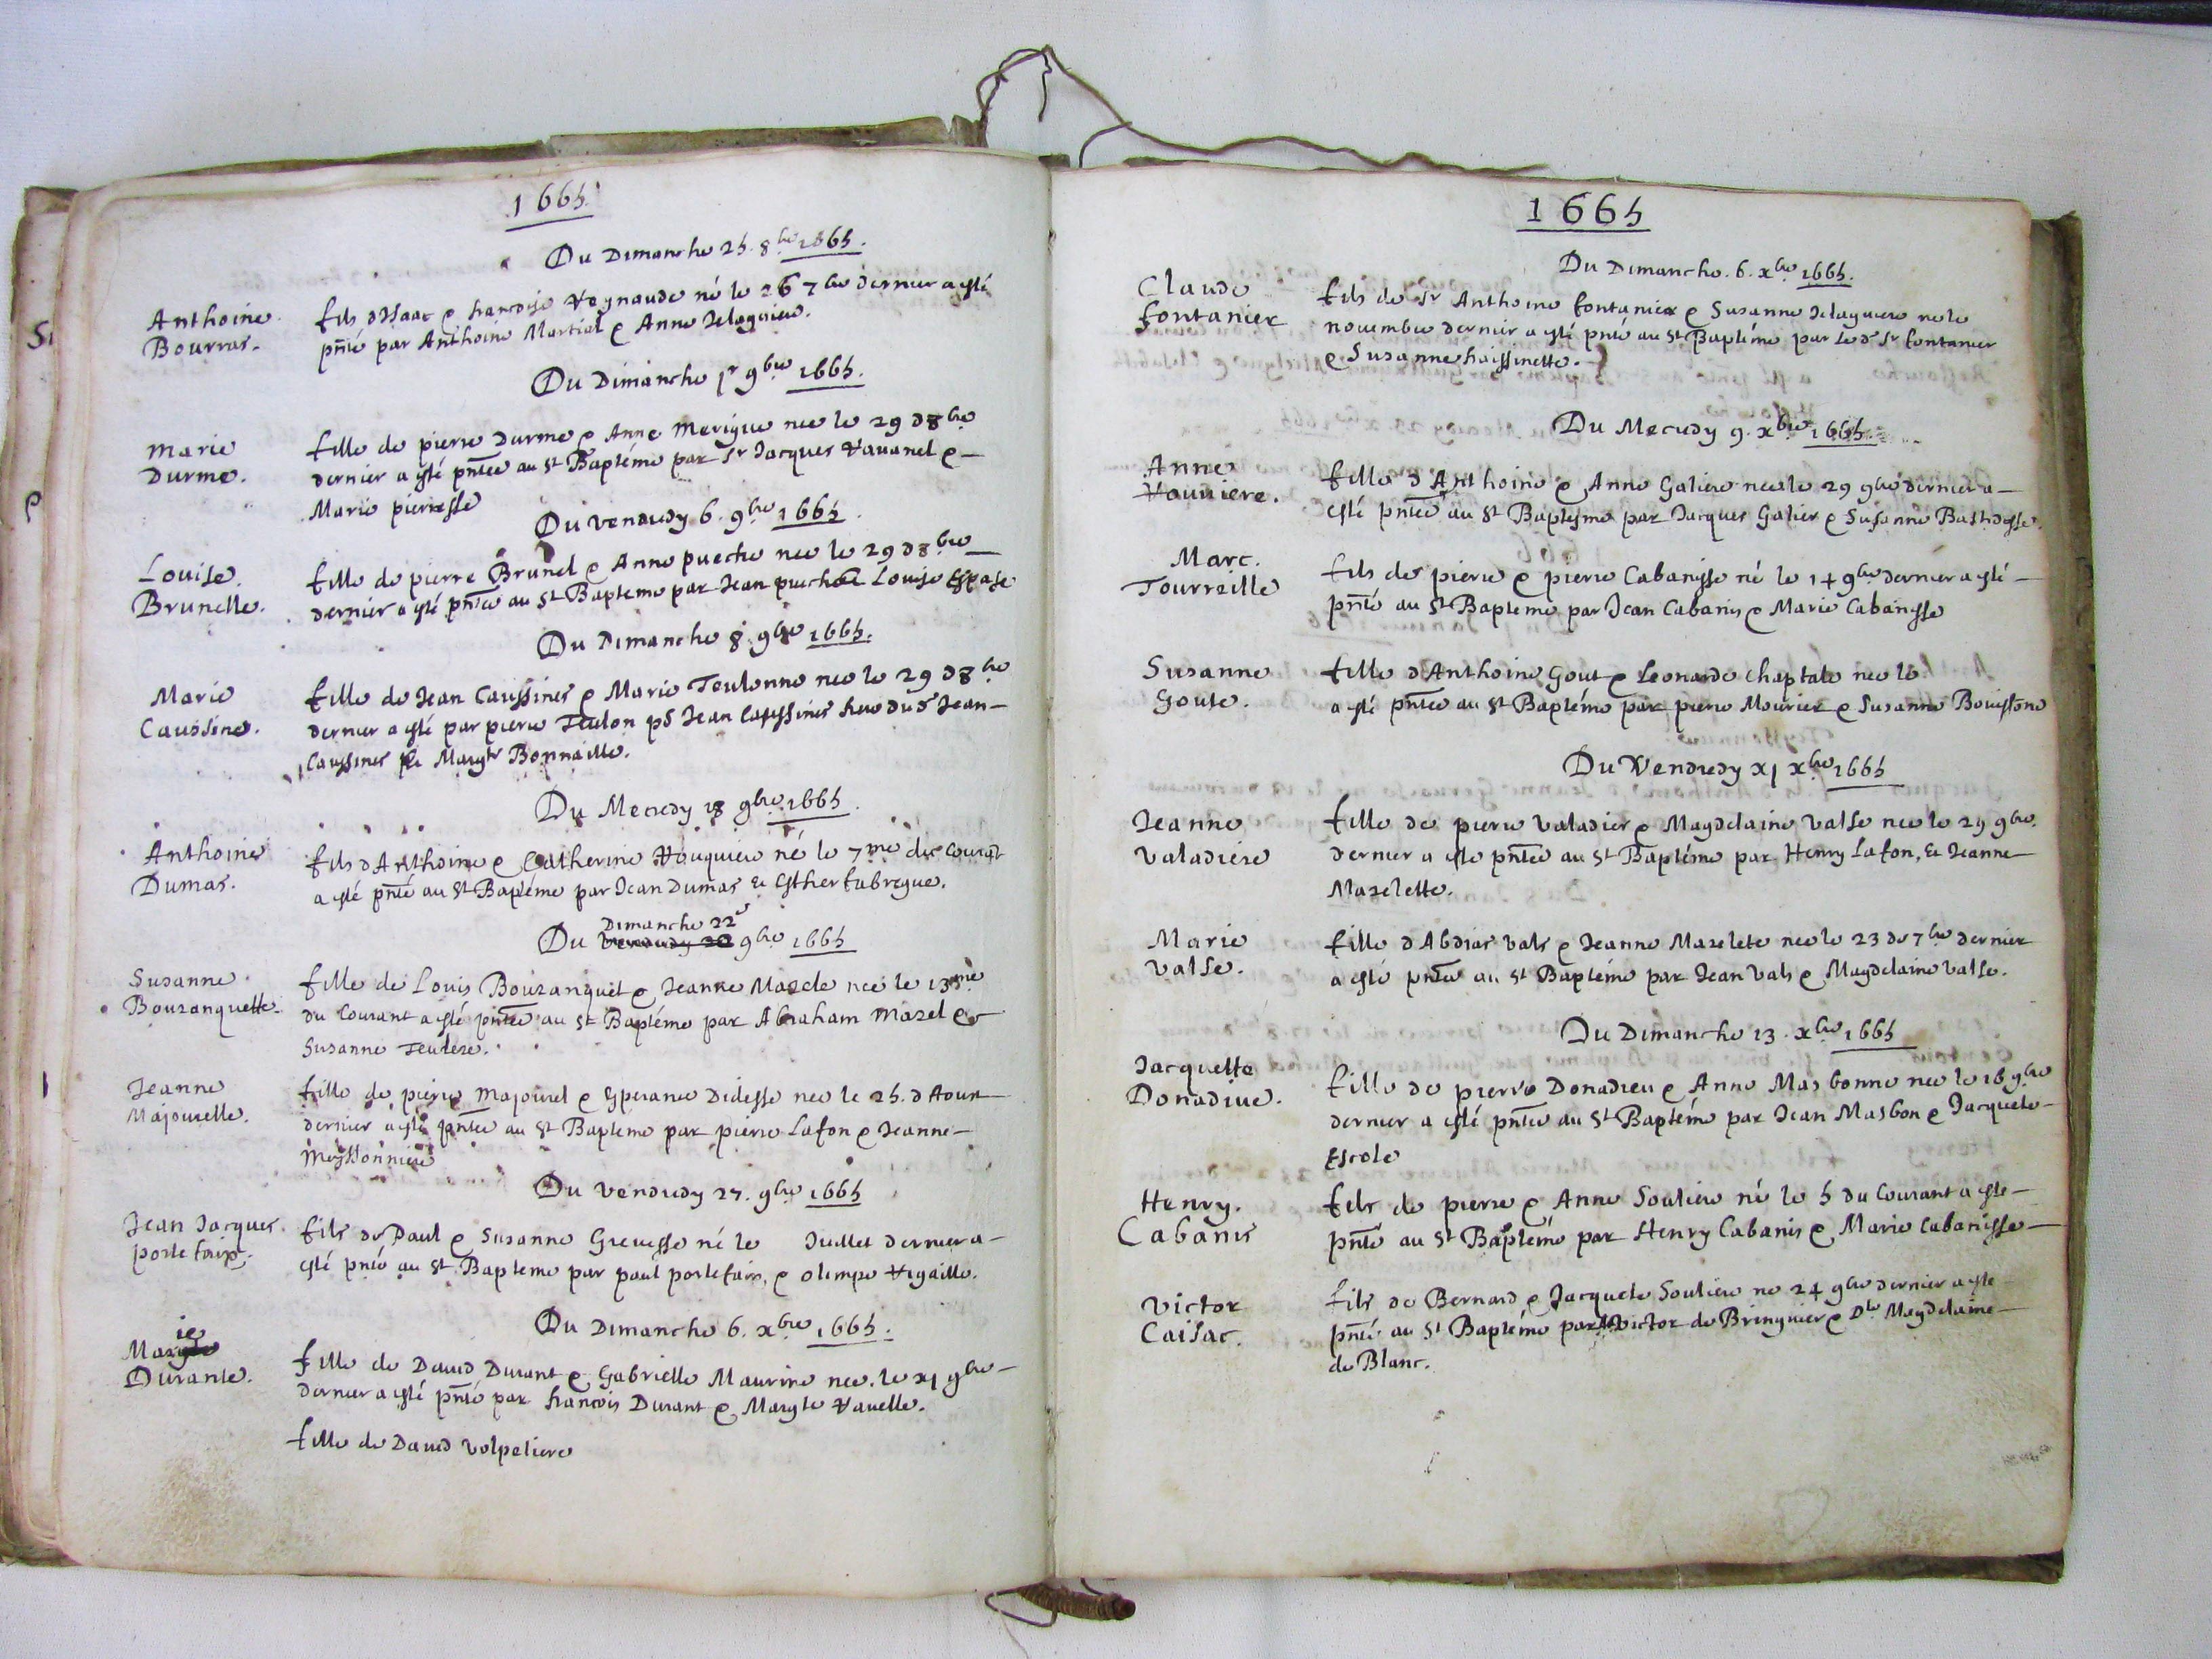 1665
Du Dimanche 25. 8bre 1665.
Anthoine
Bourras.
fils d'Isaac & francoise Veynaude né le 26 7bre dernier a esté
pnté par Anthoine Martial & Anne Delaguiere.
Du Dimanche 1r 9bre 1665.
Marie
Durme.
fille de pierre Durme & Anne Merigue nee le 29 d 8bre
dernier a esté pntée au St Baptéme par Sr Jacques Vavanel &
Marie pierresse
Du vendredy 6. 9bre 1665
Louise.
Brunelle.
fille de pierre Brunel & Anne pueche nee le 29 d 8bre
dernier a esté pntée au St Bapteme par Jean puech & Louise Espase
Du Dimanche 8. 9bre 1665.
Marie
Caussine.
fille de Jean Caussines & Marie Teulonne nee le 29 d 8bre
dernier a esté par pierre Teulon pd Jean Caussines du d Jean
Caussines & Margte Bonnaille.
Du Mecredy 18 9bre 1665.
Anthoine
Dumas.
fils d'Anthoine & Catherine Nouguiere né le 7me du Courat
a esté pnté au St Baptéme par Jean Dumas & Esther fabregue.
Dimanche 22
Du vendredy 20 9bre 1665
Susanne
Bouzanquette.
fille de Louis Bouzanquet & Jeanne Mazele nee le 13me
du Courant a esté pntée au St Baptéme par Abraham Mazel &
Susanne Teulere.
Jeanne
Majourelle.
fille de pierre Majourel & Esperance Didesse nee le 25. d Aoust
dernier a esté pntée au St Bapteme par pierre Lafon & Jeanne
Meyssonniere
Du vendredy 27. 9bre 1665
Jean Jacques.
portefaix.
fils de Paul & Susanne Grevesse né le Juillet dernier a
esté pnté au St Bapteme par paul portefaix, & olimpe Vigaille.
Du Dimanche 6. xbre 1665.
ie
Margte
Durante.
fille de David Durant & Gabrielle Maurine nee. le x1 9bre
dernier a esté pnté par francois Durant & Margte Vavelle.
fille de David volpeliere
1665
Du Dimanche. 6. xbre 1665.
Claude
fontanier
fils de Sr Anthoine fontanier & Susanne Delaguiere né le
novembre dernier a esté pnté au St Baptéme par Led Sr fontanier
& Susanne foissinette.
Du Mecredy 9. xbre 1665.
Anne
Vauviere.
fille d'Anthoine & Anne Galiere nee le 29 9bre dernier a
esté pntée au St Baptesme par Jacques Galier & Susanne Bastidesse.
Marc.
Tourreille
fils de pierre & pierre Cabanisse né le 14 9bre dernier a esté
pnté au St Bapteme par Jean Cabanis & Marie Cabanisse
Susanne
Goute.
fille d'Anthoine Gout & Leonarde Chaptale nee le
a esté pntée au St Baptéme par pierre Mourier & Susanne Bouissone
Du Vendredy x1 xbre 1665
Jeanne
valadiere
fille de pierre valadier & Magdelaine valse nee le 29 9bre.
dernier a esté pntée au St Baptéme par Henry Lafon, & Jeanne
Mazelette.
Marie
valse.
fille d'Abdias vals & Jeanne Mazelete nee le 23 de 7bre dernier
a esté pntée au St Baptéme par Jean vals & Magdelaine valse.
Du Dimanche 13. xbre 1665
Jacquette
Donadiue.
fille de pierre Donadieu & Anne Masbonne nee le 16 9bre
dernier a esté pntée au St Baptéme par Jean Masbon & Jacquete
Escole
Henry.
Cabanis
fils de pierre & Anne Souliere né le 5 du Courant a esté
pnté au St Baptéme par Henry Cabanis & Marie Cabanisse
Victor
Caisac.
fils de Bernard & Jacquete Souliere ne 24 9bre dernier a esté
pnté au St Baptéme par victor de Bringuier & Dle Magdelaine
de Blanc.